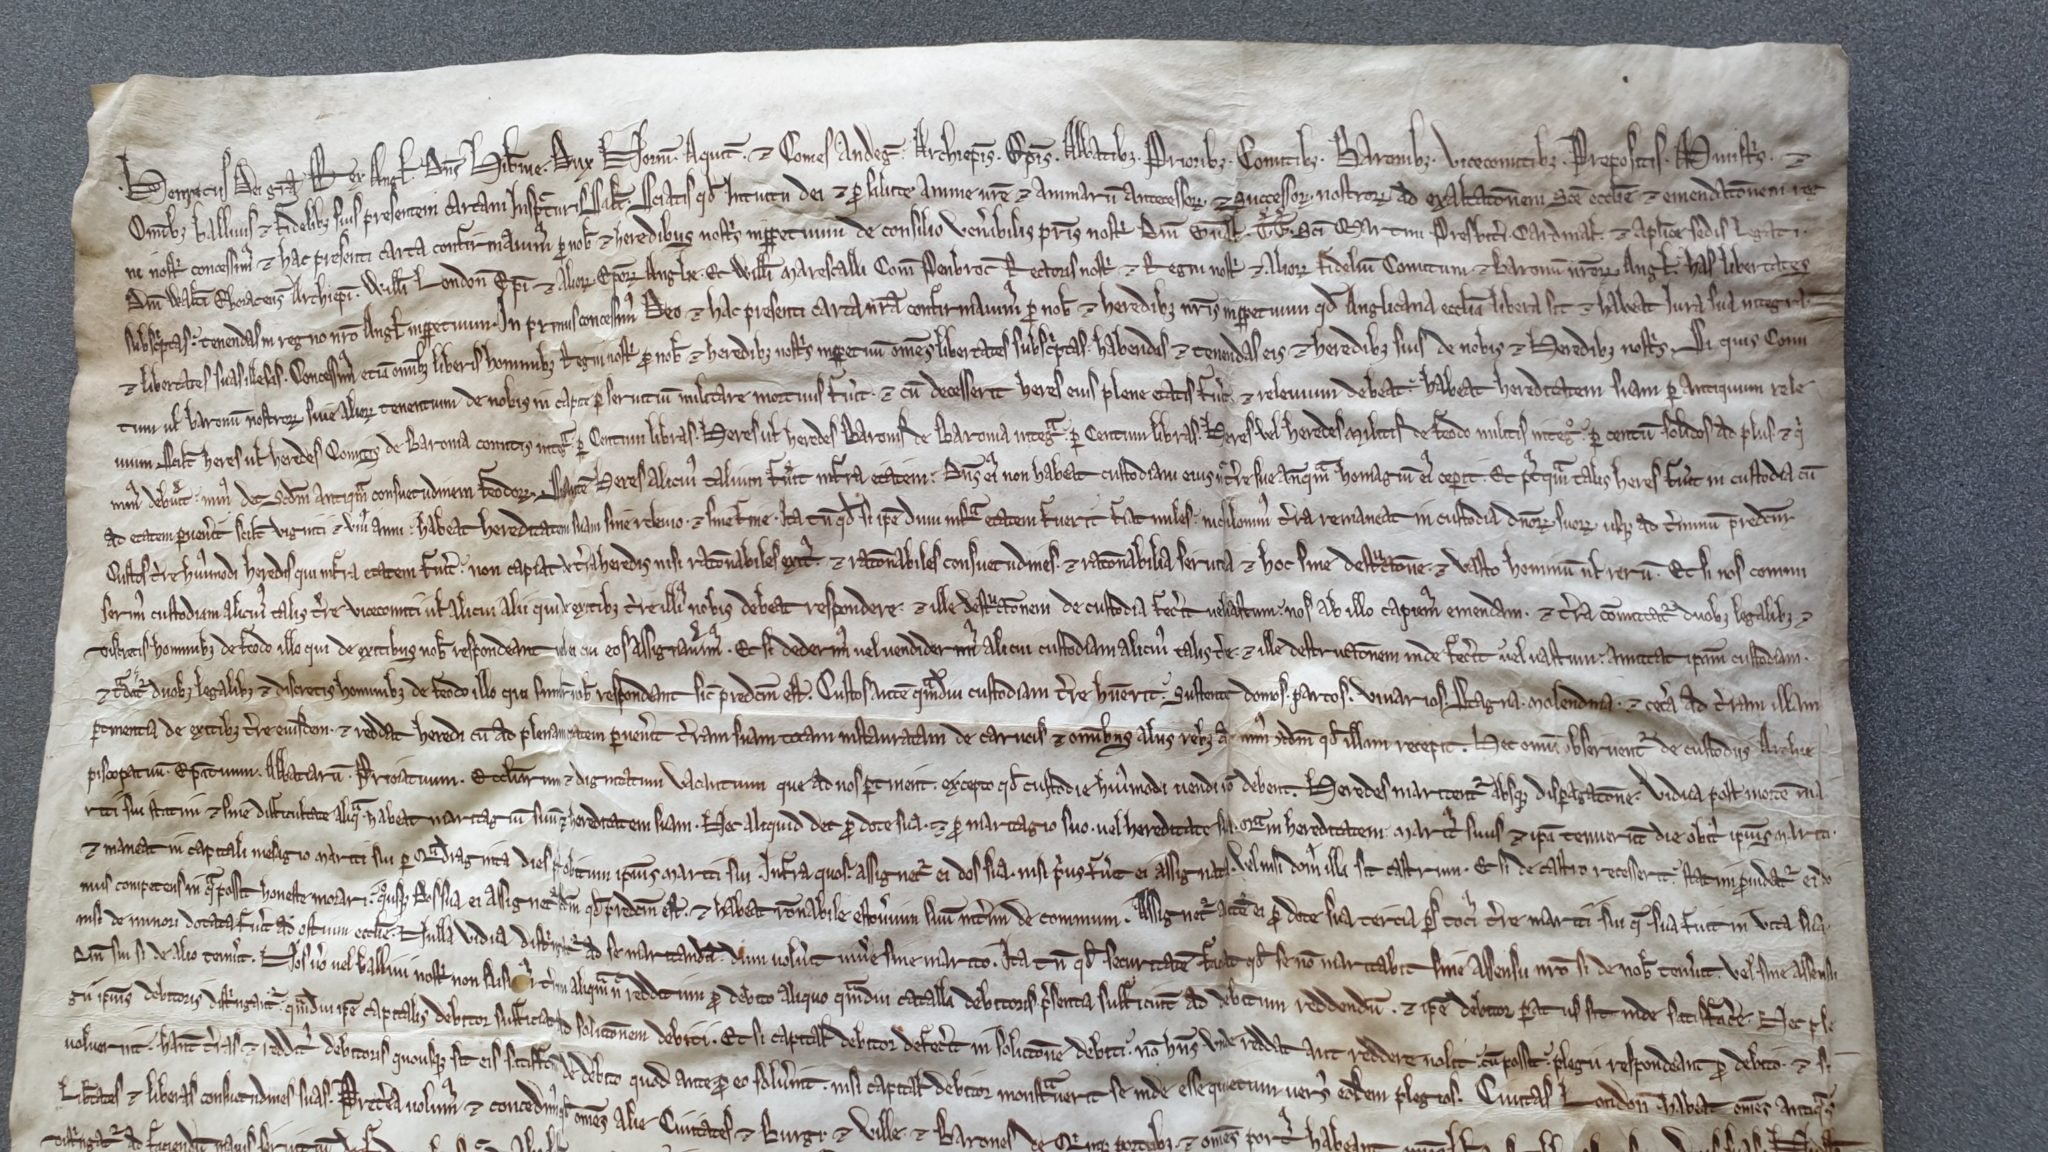 Henricus Dei gr̄a Rex Angl̄ Dn̄s Hib̄nie Dux Norm̄. Aquit̄. ⁊ Comes Andeḡ. Archiep̄is. Ep̄is. Abbatib;. Priorib;. Comitib;. Baronib;. Vicecomitib;. Prepositis. Ministr̄is. ⁊
Om̄ib; ballivis ⁊ fidelib; suis presentem cartam inspecturis Sal̄t. Sciatis qd̄ intuitu dei ⁊ ꝓ salute anime nr̄e ⁊ animarū Antecessoꝝ. ⁊ Successoꝝ. nostroꝝ ad exaltatōnem Sc̄e eccl̄ie ⁊ emendatōnem reg
ni nostr̄ concessim᾽ ⁊ hac presenti carta confirmavim᾽ ꝓ nob̄ ⁊ heredibus nostr̄is inꝑpetuum de consilio ven̄abilis pr̄is nostr̄ Dn̄i Gual̄. T̄T̄. Sc̄i Martini Presbit̄i Cardinal̄. ⁊ aplice sedis legati.
Dn̄i Walt̄i Eboracens̄ Archiep̄i. Will̄i London̄ Ep̄i ⁊ alioꝝ Ep̄oꝝ Anglie. Et Will̄i Marescalli Com̄ Penbroc̄ Rectoris nostr̄ ⁊ Regni nostr̄ ⁊ alioꝝ fidelium Comitum ⁊ Baronū nr̄oꝝ Angl̄. has libertates
subscptas. tenendas in regno nr̄o Angl̄ inꝑpetuum. In primis concessim᾽ Deo ⁊ hac presenti carta nr̄a confirmavim᾽ ꝑ nob̄ ⁊ heredib; nr̄is inꝑpetuum qd̄ Anglicana eccl̄ia libera sit ⁊ habeat Jura sua integra.
⁊ libertates suas illesas. Concessim᾽ etiā omnib; liberis hominib; Regni nostr̄ ꝓ nob̄ ⁊ heredib; nostr̄is inꝑpetuū omēs libertates subscptas. habendas ⁊ tenendas eis ⁊ heredib; suis de nobis ⁊ Heredib; nostr̄is. Si quis Comi
tum ul̄ baronū nostroꝝ sive alioꝝ tenentium de nobis in capite ꝑ servitiū militare mortuus fūit. ⁊ cū decesserit heres eius plene etatis fūit ⁊ relevium debeat. habeat hereditatem suam ꝑ antiquum rele
vium. Scil̄t heres ul̄ heredes Comitis de Baronia comitis integ̃ ꝑ Centum libras. Heres ul̄ heredes Baronis de Baronia integ̃. ꝑ Centum libras. Heres vel heredes militis de feodo militis integ̊. ꝑ centū solidos ad plus. ⁊ q̇
min᾽ debūit. min᾽ det scdm̄ antiq̄m consuetudinem feodoꝝ. Si autē Heres alicui᾽ talium fūit infra etatem. Dn̄s ei᾽ non habeat custodiam eius n̄ t̄re sue anteq̄m homagiū ei᾽ ceperit. Et postq̄m talis heres fūit in custodia cū
ad etatem ꝑven̄it scil̄t viginti ⁊ uni᾽ anni. habeat hereditatem suam sine relevio. ⁊ sine fine. Ita tn̄ qd̄ si ipse dum infra etatem fuerit fiat miles. nichilomin᾽ t̄ra remaneat in custodia dn̄oꝝ suoꝝ usq; ad t̄minū predcm̄
Custos t̄re hui᾽modi heredis qui infra etatem fūit. non capiat de t̄ra heredis nisi rat̄onabiles exit᾽. ⁊ rat̄onabiles consuetudines. ⁊ rat̄onabilia servicia ⁊ hoc sine destructōne. ⁊ vasto hominū ul̄ rerū. Et si nos commi
serim᾽ custodiam alicui᾽ talis t̄re vicecomiti ul̄ alicui alii qui de exitib; t̄re illi᾽ nobis debeat respondere. ⁊ ille destructōnem de custodia fec̄it vel vastum. nos ab illo capiem᾽ emendam. ⁊ t̄ra comittatur duob; legalib; ⁊
discretis hominib; de feodo illo qui de exitibus nob̄ respondeant vel ei cui eos assignavim᾽. Et si dederim᾽ vel vendiderim᾽ alicui custodiam alicui᾽ talis t̄re. ⁊ ille destructōnem inde fec̄it vel vastum. amittat ipam̄ custodiam.
⁊ t̄dat᾽ duob; legalib; ⁊ discretis hominib; de feodo illo qui similit̄ nob̄ respondeant sic̄ predcm̄ est. Custos autē q̄mdiu custodiam t̄re hūerit. sustentet domos. parcos. vivarios. Stagna. molendina. ⁊ cet̄a ad t̄ram illam
ꝑtinentia de exitib; t̄re eiusdem. ⁊ reddat heredi cū ad plenam etatem ꝑven̄it t̄ram suam totam instauratam de carucis ⁊ omībus aliis reb; ad min᾽ scdm̄ qd̄ illam recepit. Hec omīa observent᾽ de custodiis Archie
piscopatuū. Ep̄atuum. Abbatiarū. Prioratuum. Eccl̄iarum ⁊ dignitatum vacantium que ad nos ꝑtinent. excepto qd̄ custodie hui᾽modi vendi nō debent. Heredes maritent᾽ absq; disꝑagatōne. Vidua post mortē ma
riti sui statim ⁊ sine difficultate aliq̃ habeat maritagiū suū ⁊ hereditatem suam. Nec aliquid det ꝓ dote sua. ⁊ ꝓ maritagio suo. vel hereditate sua. quam hereditatem marit᾽ suus ⁊ ipa tenuerūt die obit᾽ ipius mariti.
⁊ maneat in capitali mesagio mariti sui ꝑ Quadraginta dies post obitum ipius mariti sui. Infra quos. assignet᾽ ei dos sua. nisi pri᾽us fūit ei assignata. vel nisi dom᾽ illi sit castrum. Et si de castro recesserit. statim ꝓvideat᾽ ei do
mus competens in q̃ possit honeste morari. quousq; Dos sua ei assignet᾽ scdm̄ qd̄ predcm̄ est. ⁊ habeat rōnabile estoverium suū int̄im de communi. Assignet᾽ autē ei ꝓ dote sua tercia ꝑs toci᾽ t̄re mariti sui q̄ sua fuit in vita sua.
nisi de minori dotata fūit ad ostium eccl̄ie. Nulla vidua distringat᾽ ad se maritandā. dum volūit viv̄e sine marito. Ita tn̄ qd̄ securitatē faciet qd̄ se nō maritabit sine assensu nr̄o si de nob̄ tenūit. vel. sine assensu
dn̄i sui si de alio tenūit. Nos v̄o vel ballivi nostr̄i non saisiem᾽ t̄ram aliq̄m n̄ redditum ꝓ debito aliquo q̄mdiu catalla debitoris p̄sentia sufficiūt ad debitum reddendū. ⁊ ip̄e debitor ꝑatus sit inde satisfac̄e. Nec ple
gii ipius debitoris distringant᾽. q̄mdiu ip̄e capitalis debitor sufficiat ad solutōnem debiti. Et si capital̄ debitor defec̄it in solutōne debiti. nō hn̄s unde reddat aut reddere nolit cū possit. plegii respondeant ꝓ debito. ⁊ si
voluerint. hān̄t t̄ras. ⁊ reddit᾽ debitoris quousq; sit eis satisfcm̄ de debito quod ante ꝓ eo solūint. nisi capital̄ debitor monstraverit se inde esse quietum vers᾽ eosdem plegios. Civitas London̄ habeat omēs antiq̃s
Lib̄tates ⁊ liberas consuetudines suas. Pret̄ea volum᾽. ⁊ concedim᾽ qd̄ omēs alie Civitates ⁊ Burgi ⁊ Ville. ⁊ Barones de Quinq; portib; ⁊ omēs port᾽ habeant
distringat᾽ ad faciendū maius servitiū